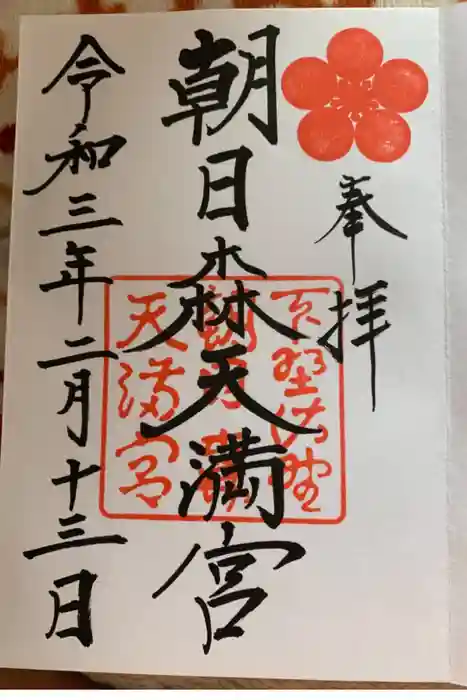 奉拝
朝日森天満宮
下野佐野
朝日森
天満宮
令和三年二月十三日